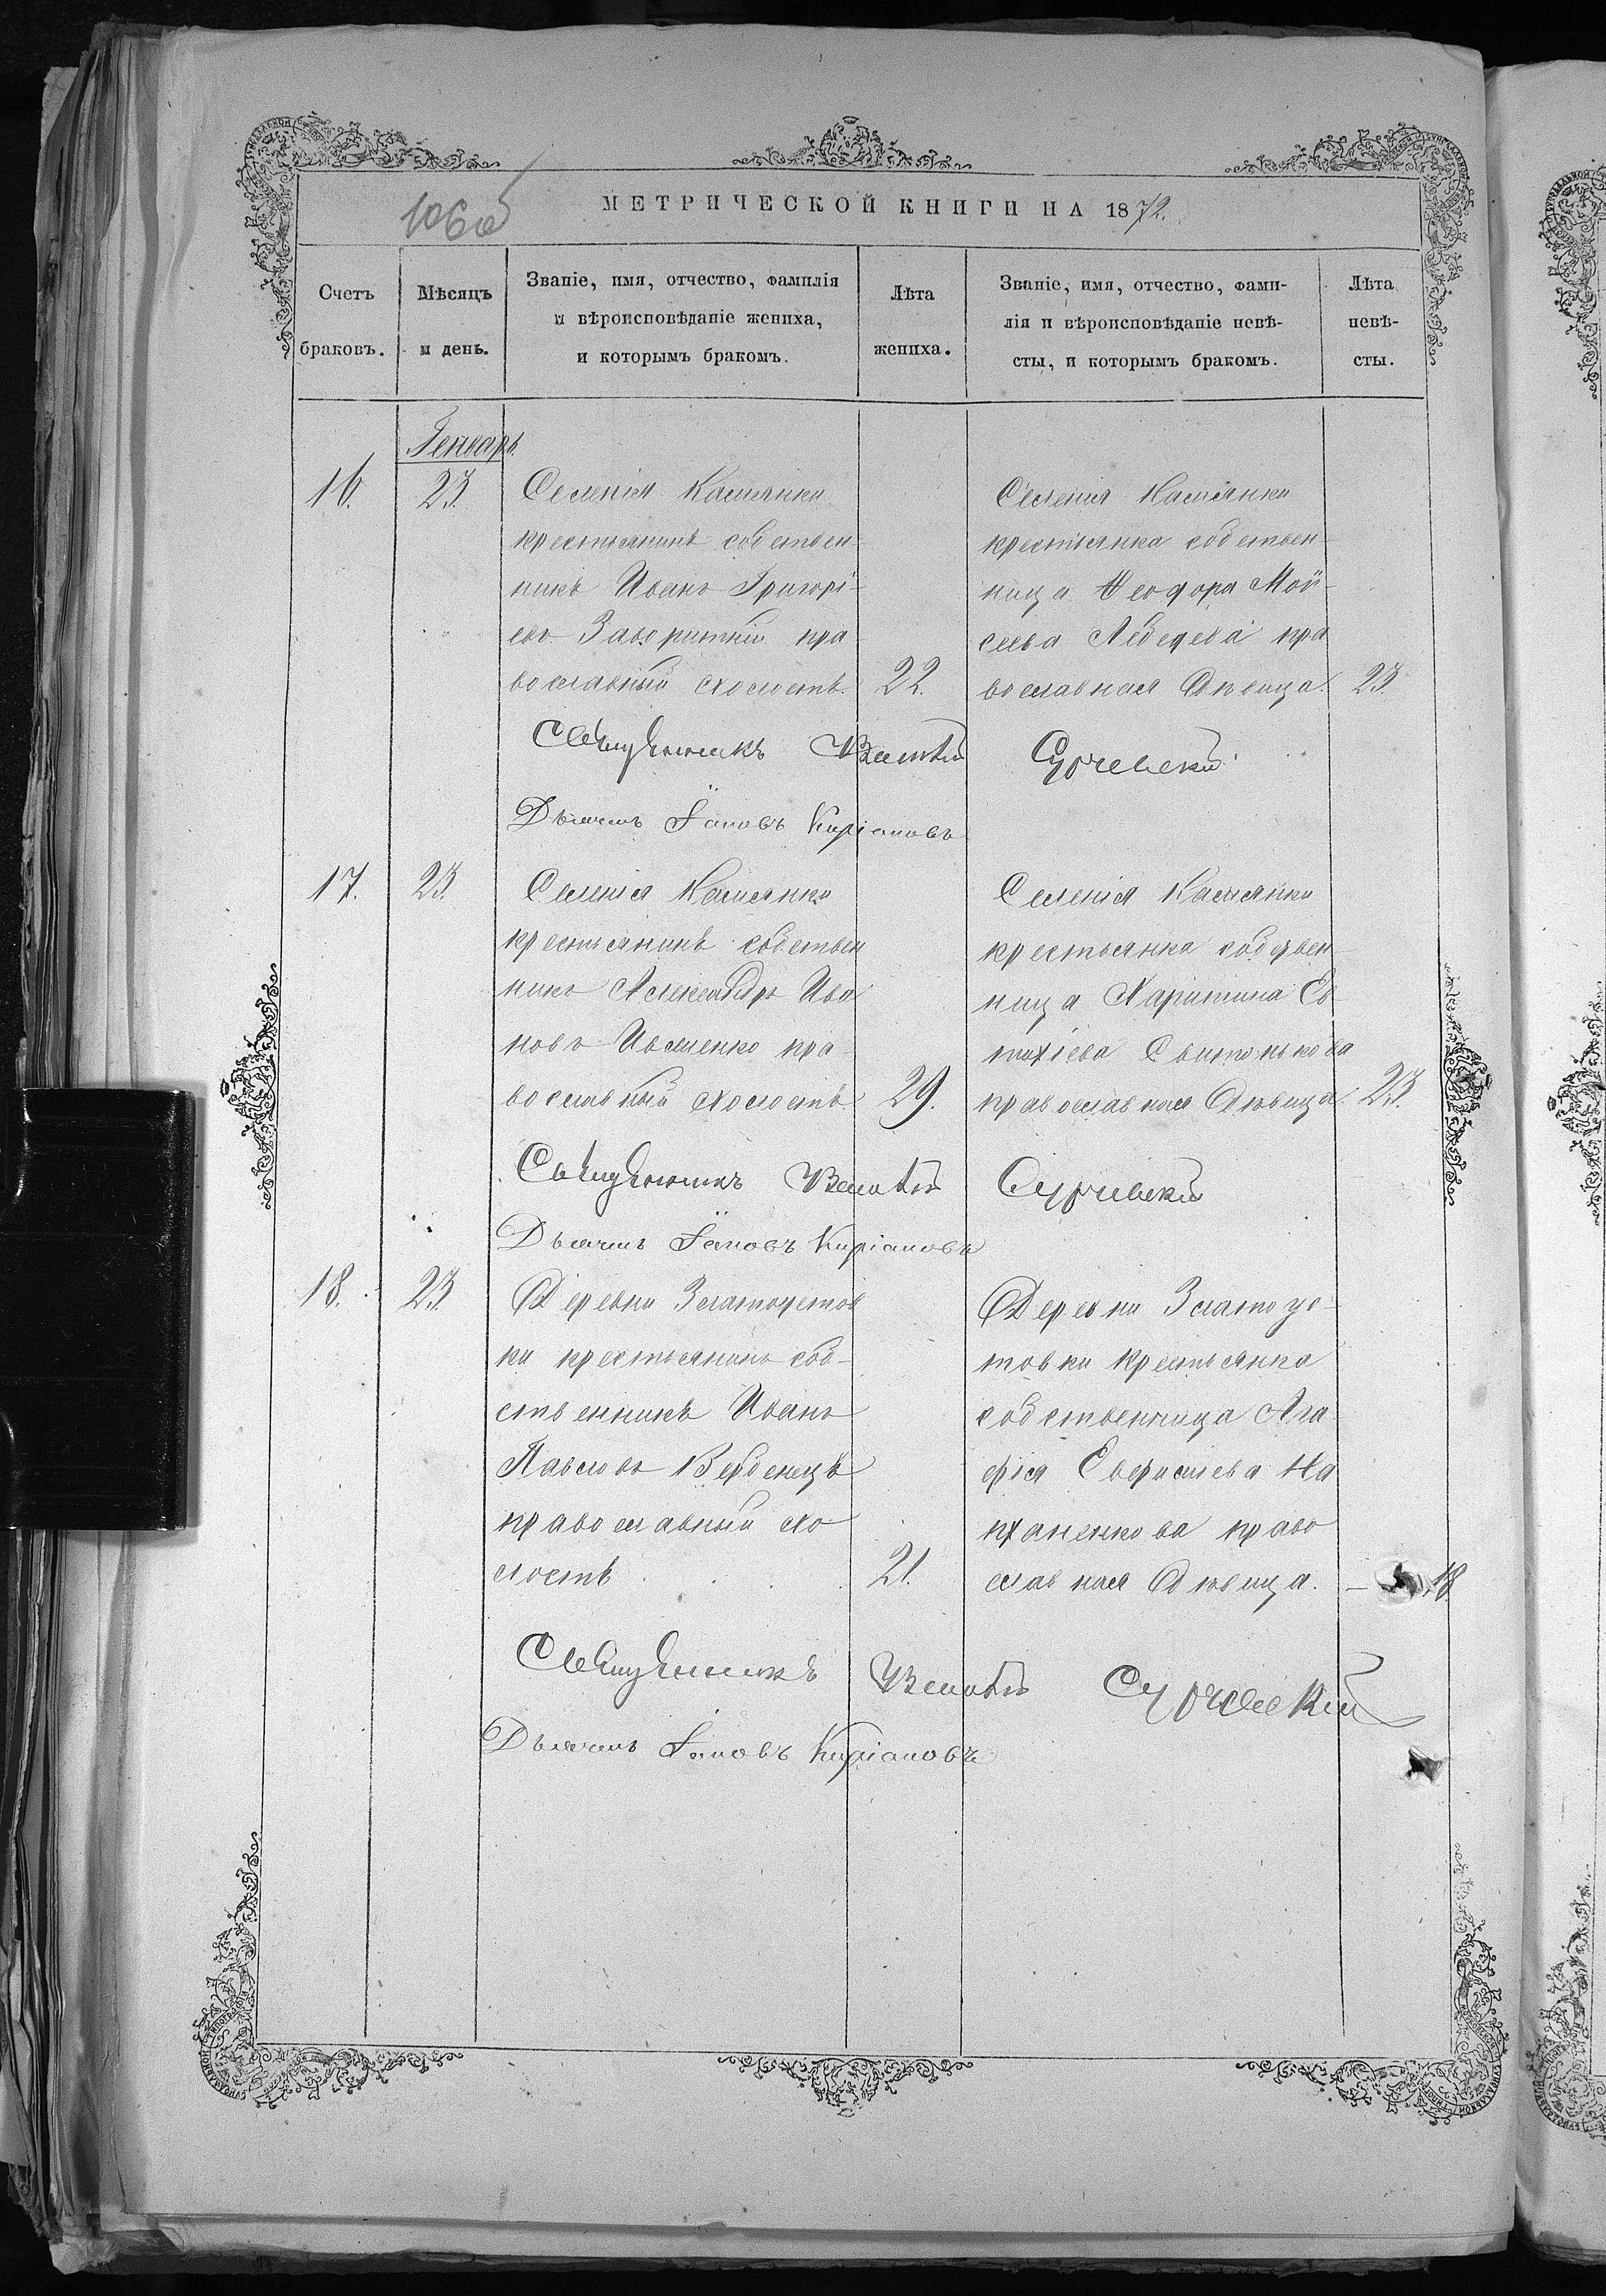 106об
МЕТРИЧЕСКОЙ КНИГИ НА 1872.
Счетъ браковъ.
Мѣсяцъ и день.
Званіе, имя, отчество, фамилія
и вѣроисповѣданіе жениха,
и которымъ бракомъ.
Лѣта жениха.
Званіе, имя, отчество, фами-
лія и вѣроисповѣданіе невѣ-
сты, и которымъ бракомъ.
Лѣта невѣ-
сты.
Генварь.
16. 23.
Селенія Камянки
крестьянинъ собствен-
никъ Иванъ Григорі-
евъ Заворитній пра
вославный холостъ. 22.
Селенія Камянки
крестьянка собствен-
ница Ѳеодора Мой-
сеева Лебедева пра
вославная дѣвица. 23.
Священникъ Сурчевскій
Дьячекъ Іаковъ Киріановъ
17. 23.
Селенія Камянки
крестьянинъ собствен
никъ Александръ Ива
новъ Ивленко пра-
вославный холостъ. 29.
Селенія Камянки
крестьянка собствен
ница Харитина Ев-
тихіева Свитонькова
православная дѣвица 23.
Священникъ Сурчевскій
Дьячекъ Іаковъ Киріановъ
18. 23.
Деревни Златоустов
ки крестьянинъ соб-
ственникъ Иванъ
Павловъ Вербенецъ
православный хо
лостъ 21.
Деревни Златоус-
товки крестьянка
собственница Ага
фія Еверсиева На
нханенкова право
славная дѣвица. — 18.
Священникъ Сурчевскій
Дьячекъ Іаковъ Киріановъ